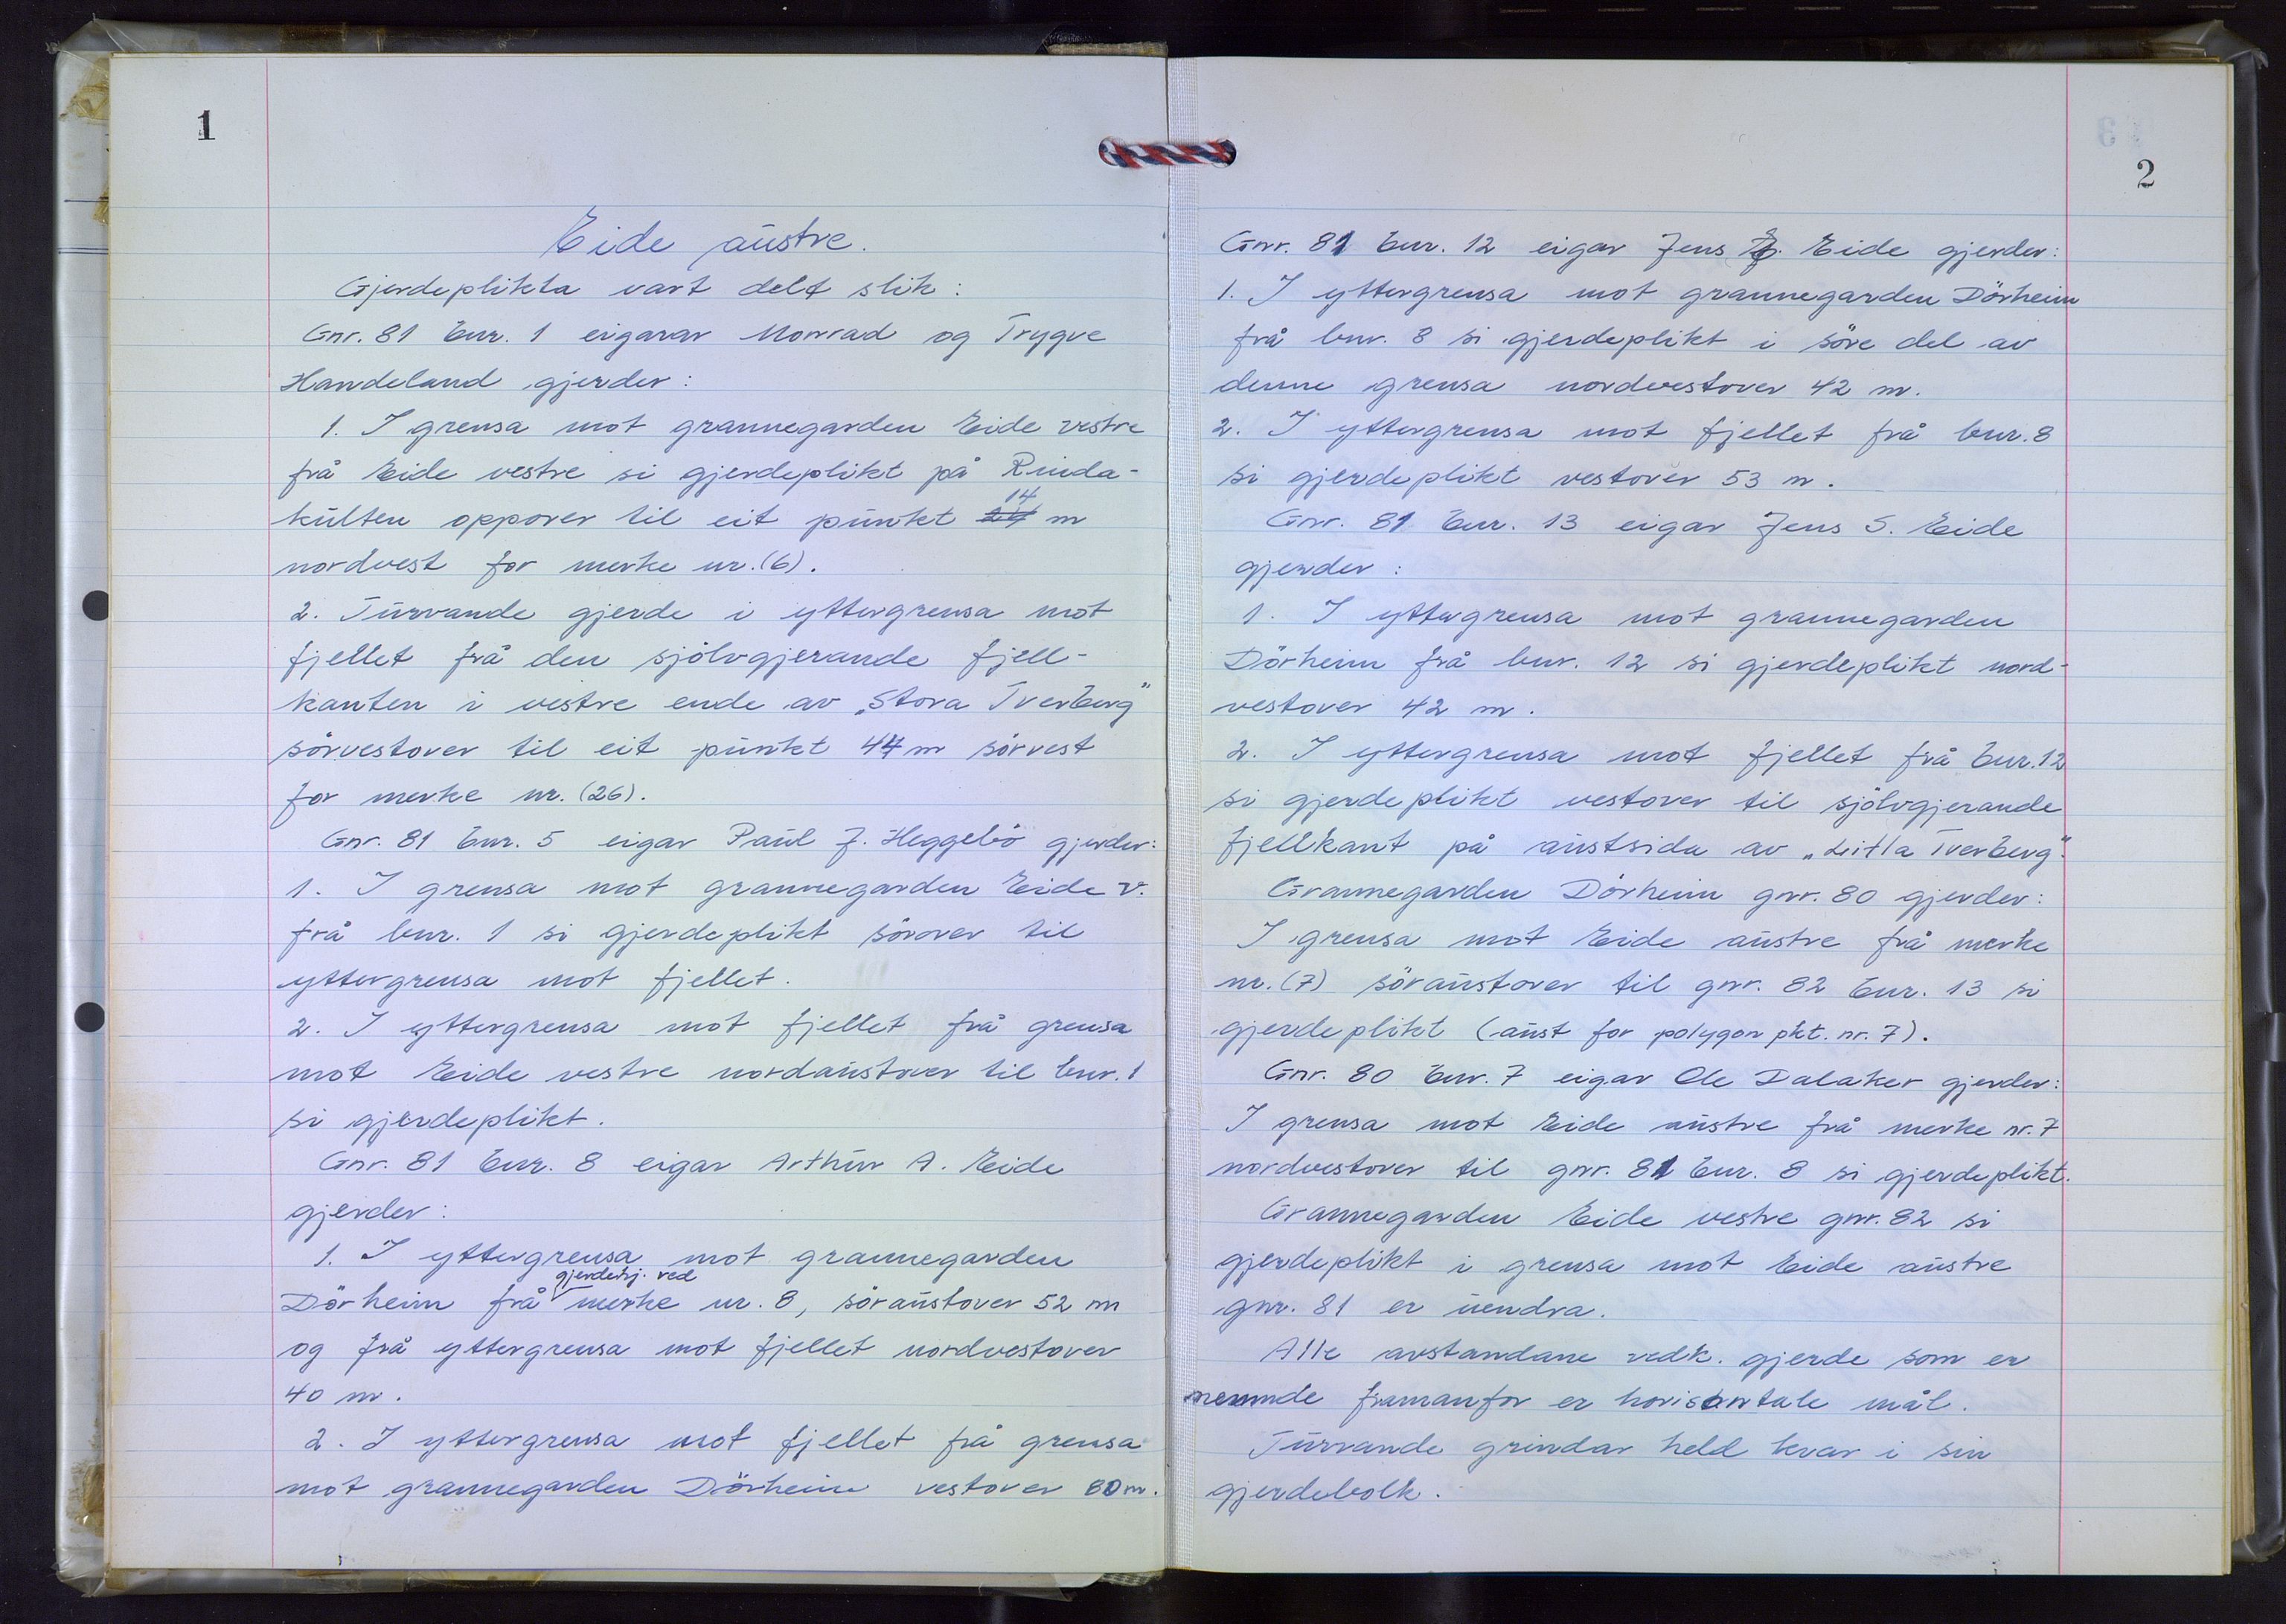 1
Eide austre.
Gjerdeplikta vart delt slik:
Gnr. 81 bnr. 1 eigarar Monrad og Trygve
Handeland gjerder:
1. I grensa mot grannegarden Eide vestre
frå Eide vestre si gjerdeplikt på Rinda-
kulten oppover til eit punkt 14 m
nordvest for merke nr. (6).
2. Turvande gjerde i yttergrensa mot
fjellet frå den sjölvgjerande fjell-
kanten i vestre ende av „Stora Tverberg"
sörvestover til eit punkt 44 m sörvest
for merke nr. (26).
Gnr. 81 bnr. 5 eigar Paul J. Heggebö gjerder:
1. I grensa mot grannegarden Eide v.
frå bnr. 1 si gjerdeplikt sörover til
yttergrensa mot fjellet.
2. I yttergrensa mot fjellet frå grensa
mot Eide vestre nordaustover til bnr. 1
si gjerdeplikt.
Gnr. 81 bnr. 8 eigar Arthur A. Eide
gjerder:
1. I yttergrensa mot grannegarden
gjerdehj. ved
Dörheim frå merke nr. 8, söraustover 52 m
og frå yttergrensa mot fjellet nordvestover
40 m.
2. I yttergrensa mot fjellet frå grensa
mot grannegarden Dörheim vestover 80 m.
2
Gnr. 81 bnr. 12 eigar Jens Eide gjerder:
1. I yttergrensa mot grannegarden Dörheim
frå bnr. 8 si gjerdeplikt i söre del av
denne grensa nordvestover 42 m.
2. I yttergrensa mot fjellet frå bnr. 8
si gjerdeplikt vestover 53 m.
Gnr. 81 bnr. 13 eigar Jens S. Eide
gjerder:
1. I yttergrensa mot grannegarden
Dörheim frå bnr. 12 si gjerdeplikt nord-
vestover 42 m.
2. I yttergrensa mot fjellet frå bnr. 12
si gjerdeplikt vestover til sjölvgjerande
fjellkant på austsida av „Litla Tverberg".
Grannegarden Dörheim gnr. 80 gjerder:
I grensa mot Eide austre frå merke
nr. (7) söraustover til gnr. 82 bnr. 13 si
gjerdeplikt (aust for polygon pkt. nr. 7).
Gnr. 80 bnr. 7 eigar Ole Dalaker gjerder:
I grensa mot Eide austre frå merke nr. 7
nordvestover til gnr. 81 bnr. 8 si gjerdeplikt.
Grannegarden Eide vestre gnr. 82 si
gjerdeplikt i grensa mot Eide austre
gnr. 81 er uendra.
Alle avstandane vedk. gjerde som er
nemnde framanfor er horisontale mål.
Turvande grindar held kvar i sin
gjerdebolk.